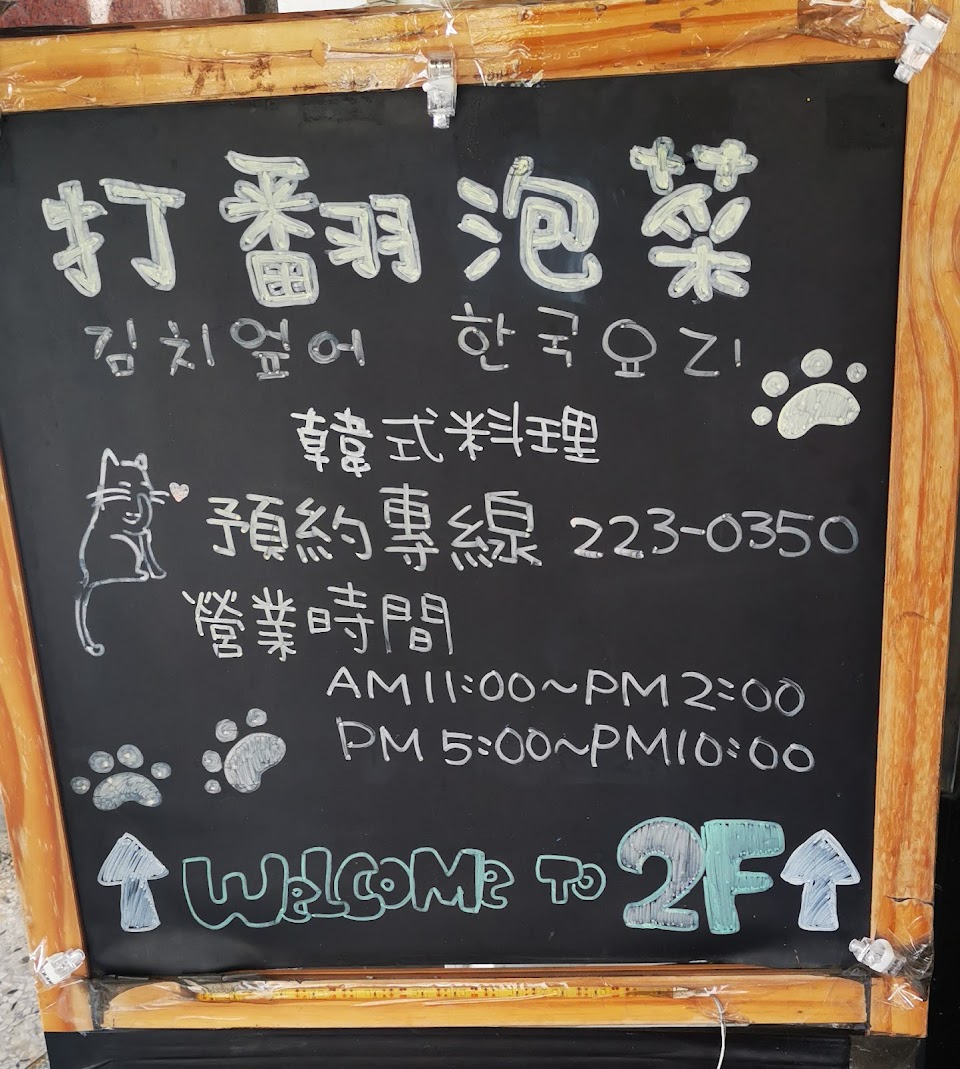 打翻泡菜
김치엎어 한국요리
韓式料理
預約專線 223-0350
營業時間
AM11:00~PM2:00
PM5:00~PM10:00
WeLCOMe TO 2F